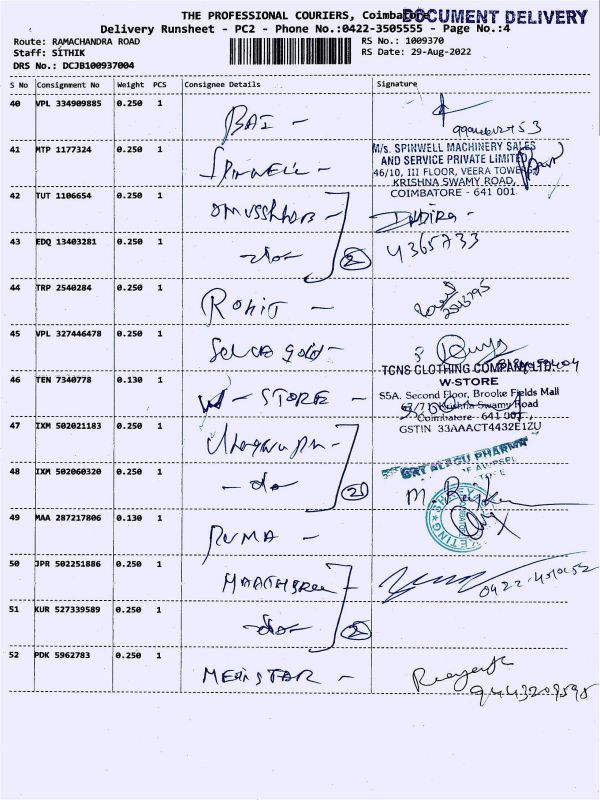 THE PROFESSIONAL COURIERS, Coimbatore
DOCUMENT DELIVERY
Delivery Runsheet - PC2 - Phone No.:0422-3505555 - Page No.:4
Route: RAMACHANDRA ROAD
RS No.: 1009370
Staff: SITHIK
RS Date: 29-Aug-2022
DRS No.: DCJB100937004
S No Consignment No Weight PCS Consignee Details Signature
40 VPL 334909885 0.250 1 BAI -
41 MTP 1177324 0.250 1 Spinwell -
M/s. SPINWELL MACHINERY SALES
AND SERVICE PRIVATE LIMITED
46/10, III FLOOR, VEERA TOWERS,
KRISHNA SWAMY ROAD,
COIMBATORE - 641 001
42 TUT 1106654 0.250 1
43 EDQ 13403281 0.250 1 -do- 2 4365733
44 TRP 2540284 0.250 1 ROHIT -
45 VPL 327446478 0.250 1 gold-
46 TEN 7340778 0.130 1 W - STORE -
TCNS CLOTHING COMPANY LTD.
W-STORE
S5A. Second Floor, Brooke Fields Mall
Krishna Swamy Road
Coimbatore - 641 001
GSTIN 33AAACT4432E1ZU
47 IXM 502021183 0.250 1
48 IXM 502060320 0.250 1 -do- 2
ALAGU PHARMA
49 MAA 287217806 0.130 1 PUMA -
50 JPR 502251886 0.250 1
51 KUR 527339589 0.250 1 -do- 2
52 PDK 5962783 0.250 1 MEDISTAR -